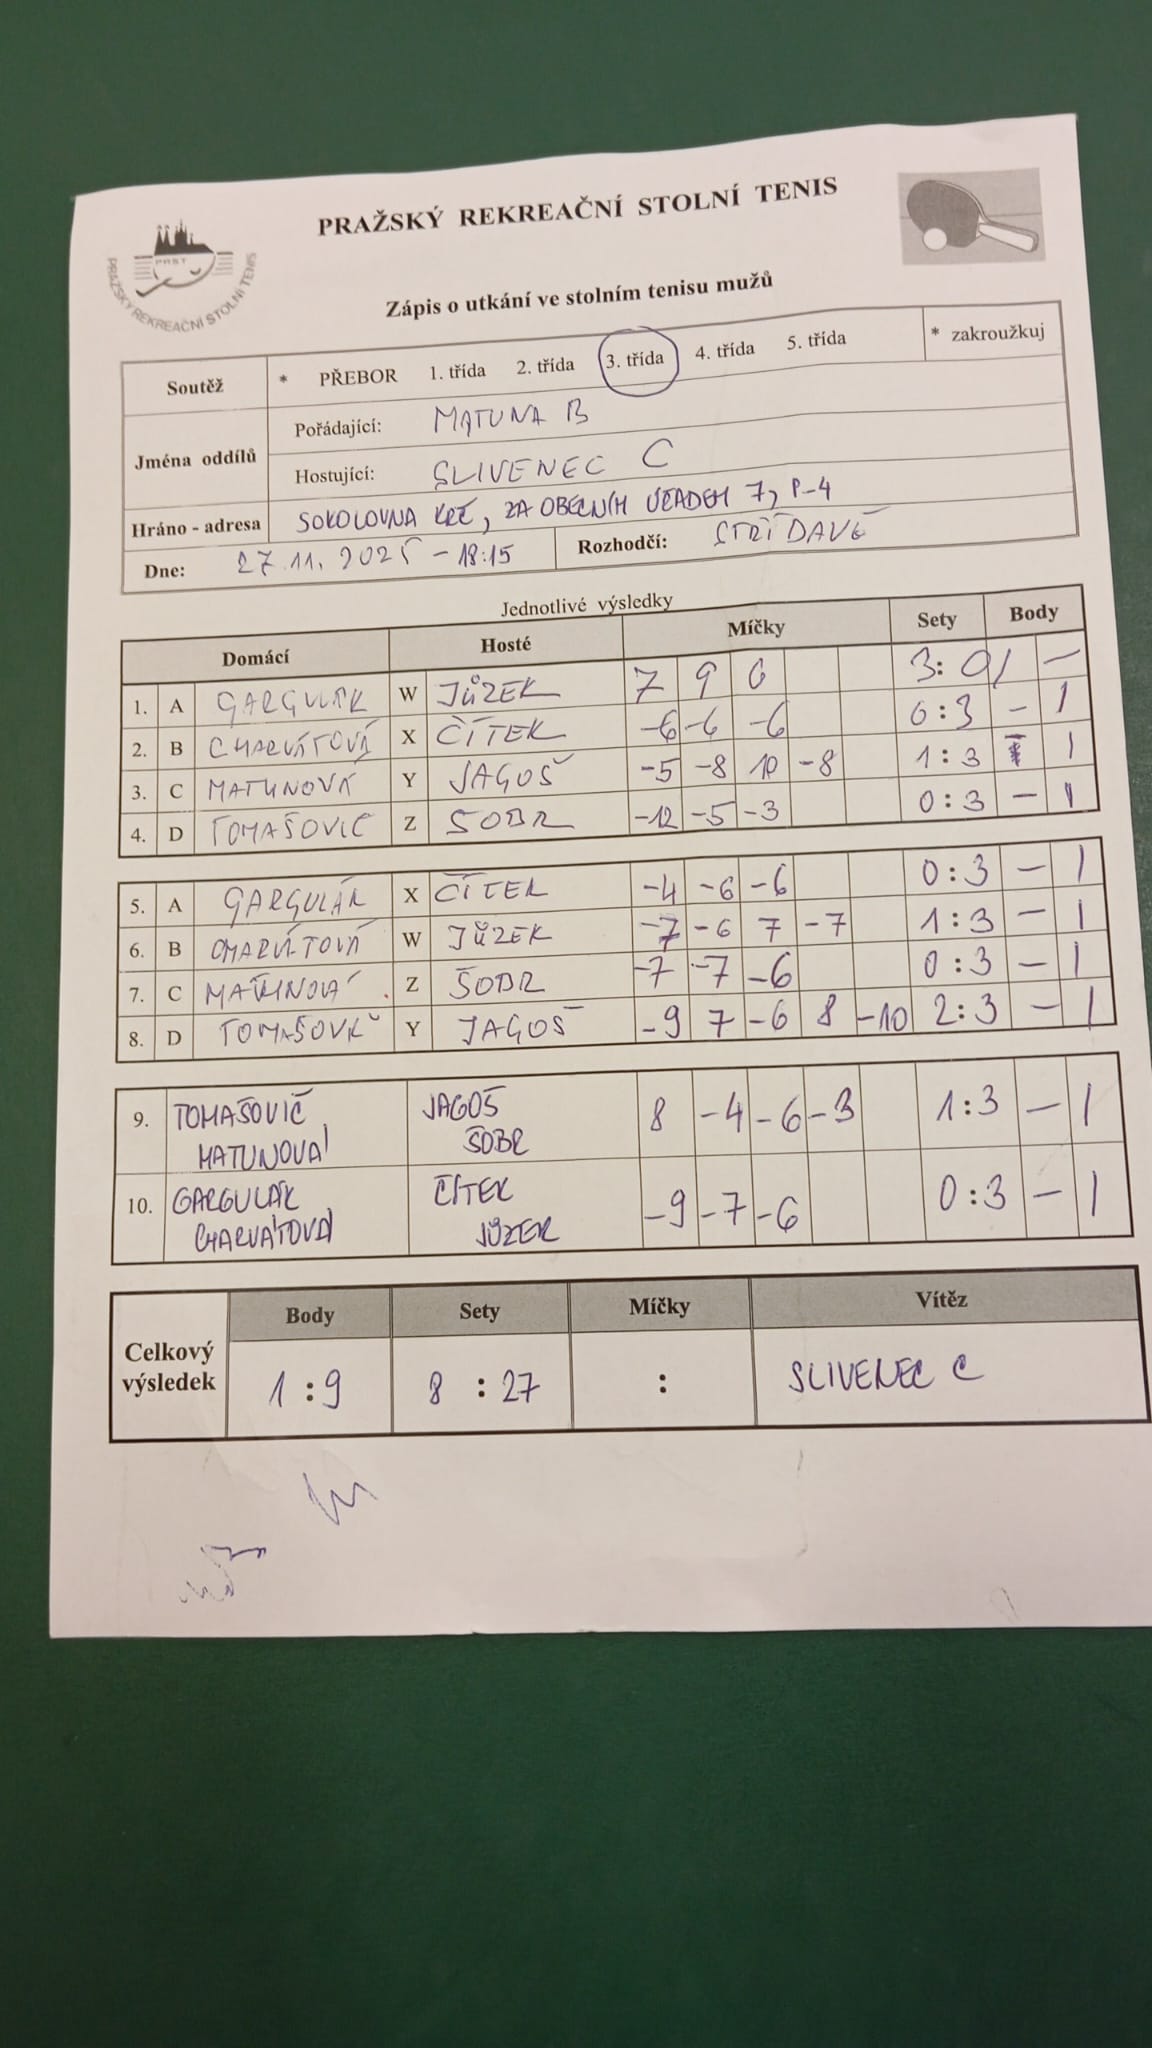 PRAŽSKÝ REKREAČNÍ STOLNÍ TENIS
PRST
PRAŽSKÝ REKREAČNÍ STOLNÍ TENIS
Zápis o utkání ve stolním tenisu mužů
Soutěž * PŘEBOR 1. třída 2. třída 3. třída 4. třída 5. třída * zakroužkuj
Jména oddílů
Pořádající: MATUNA B
Hostující: SLIVENEC C
Hráno - adresa SOKOLOVNA KRČ, ZA OBECNÍM ÚŘADEM 7, P-4
Dne: 27.11.2025 - 18:15 Rozhodčí: STŘÍDAVĚ
Jednotlivé výsledky
Domácí Hosté Míčky Sety Body
1. A GARGULÁK W JŮZEK 7 9 6 3:0 1 -
2. B CHARVÁTOVÁ X ČÍTEK -6 -6 -6 0:3 - 1
3. C MATUNOVÁ Y JAGOŠ -5 -8 10 -8 1:3 - 1
4. D TOMAŠOVIČ Z ŠOBR -12 -5 -3 0:3 - 1
5. A GARGULÁK X ČÍTEK -4 -6 -6 0:3 - 1
6. B CHARVÁTOVÁ W JŮZEK -7 -6 7 -7 1:3 - 1
7. C MATUNOVÁ Z ŠOBR -7 -7 -6 0:3 - 1
8. D TOMAŠOVIČ Y JAGOŠ -9 7 -6 8 -10 2:3 - 1
9. TOMAŠOVIČ JAGOŠ 8 -4 -6 -3 1:3 - 1
MATUNOVÁ ŠOBR
10. GARGULÁK ČÍTEK -9 -7 -6 0:3 - 1
CHARVÁTOVÁ JŮZEK
Celkový výsledek
Body Sety Míčky Vítěz
1:9 8:27 : SLIVENEC C